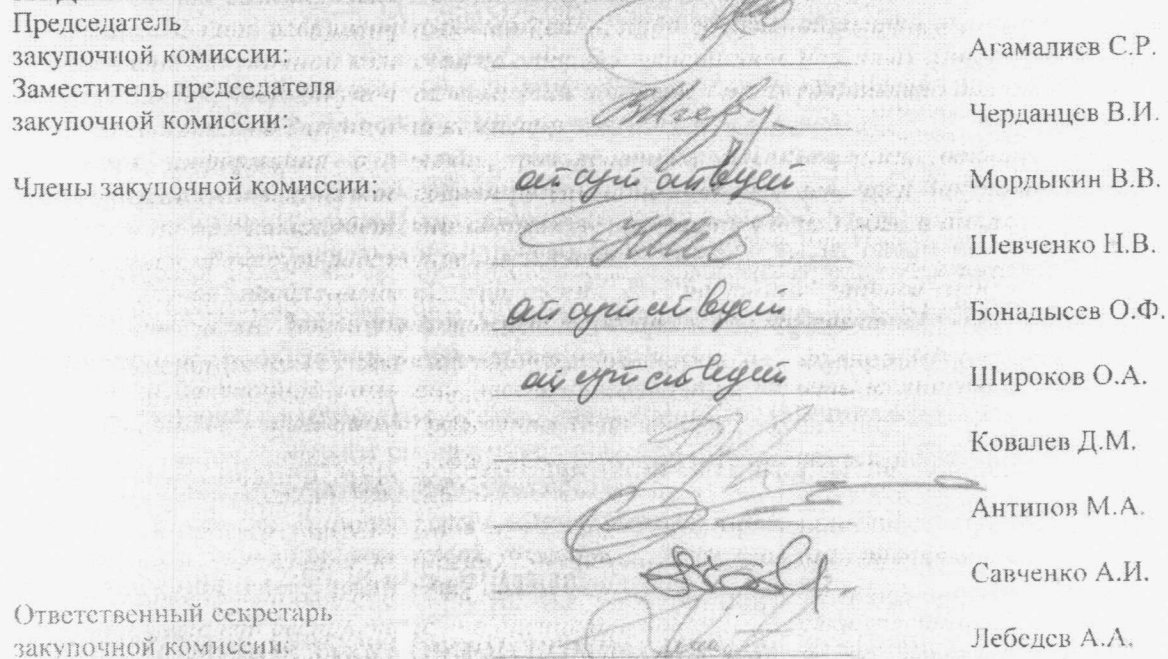 Председатель
закупочной комиссии: Агамалиев С.Р.
Заместитель председателя
закупочной комиссии: Черданцев В.И.
Члены закупочной комиссии: отсутствует Мордыкин В.В.
Шевченко Н.В.
отсутствует Бонадысев О.Ф.
отсутствует Широков О.А.
Ковалев Д.М.
Антипов М.А.
Савченко А.И.
Ответственный секретарь
закупочной комиссии: Лебедев А.А.